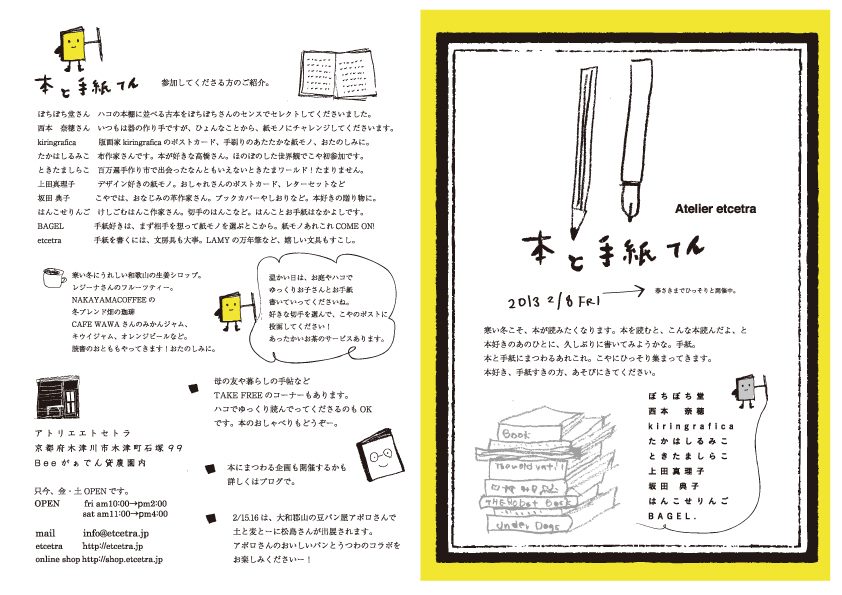 本と手紙てん
参加してくださる方のご紹介。
ぼちぼち堂さん　ハコの本棚に並べる古本をぼちぼちさんのセンスでセレクトしてくださいました。
西本　奈穂さん　いつもは器の作り手ですが、ひょんなことから、紙モノにチャレンジしてくださいます。
kiringrafica　版画家kiringraficaのポストカード、手刷りのあたたかな紙モノ、おたのしみに。
たかはしるみこ　布作家さんです。本が好きな高橋さん。ほのぼのした世界観でこや初参加です。
ときたましらこ　百万遍手作り市で出会ったなんともいえないときたまワールド！たまりません。
上田真理子　デザイン好きの紙モノ。おしゃれさんのポストカード、レターセットなど
坂田 典子　こやでは、おなじみの革作家さん。ブックカバーやしおりなど。本好きの贈り物に。
はんこせりんご　けしごむはんこ作家さん。切手のはんこなど。はんことお手紙はなかよしです。
BAGEL　手紙好きは、まず相手を想って紙モノを選ぶとこから。紙モノあれこれCOME ON!
etcetra　手紙を書くには、文房具も大事。LAMYの万年筆など、嬉しい文具もすこし。
寒い冬にうれしい和歌山の生姜シロップ。
レジーナさんのフルーツティー。
NAKAYAMACOFFEEの
冬ブレンド畑の珈琲
CAFE WAWAさんのみかんジャム、
キウイジャム、オレンジピールなど。
読書のおとももやってきます！おたのしみに。
温かい日は、お庭やハコで
ゆっくりお子さんとお手紙
書いていってくださいね。
好きな切手を選んで、こやのポストに
投函してください！
あったかいお茶のサービスあります。
母の友や暮らしの手帖など
TAKE FREEのコーナーもあります。
ハコでゆっくり読んでってくださるのもOK
です。本のおしゃべりもどうぞー。
本にまつわる企画も開催するかも
詳しくはブログで。
2/15.16は、大和郡山の豆パン屋アポロさんで
土と麦とーに松島さんが出展されます。
アポロさんのおいしいパンとうつわのコラボを
お楽しみくださいー！
アトリエエトセトラ
京都府木津川市木津町石塚99
Beeがぁでん貸農園内
只今、金・土OPENです。
OPEN　fri am10:00→pm2:00
sat am11:00→pm4:00
mail　info@etcetra.jp
etcetra　http://etcetra.jp
online shop http://shop.etcetra.jp
Atelier etcetra
本と手紙てん
2013 2/8 FRI
春さきまでひっそりと開催中。
寒い冬こそ、本が読みたくなります。本を読むと、こんな本読んだよ、と
本好きのあのひとに、久しぶりに書いてみようかな。手紙。
本と手紙にまつわるあれこれ。こやにひっそり集まってきます。
本好き、手紙すきの方、あそびにきてください。
ぼちぼち堂
西本　奈穂
kiringrafica
たかはしるみこ
ときたましらこ
上田真理子
坂田　典子
はんこせりんご
BAGEL.
Book
THE Robot Book
Under Dogs